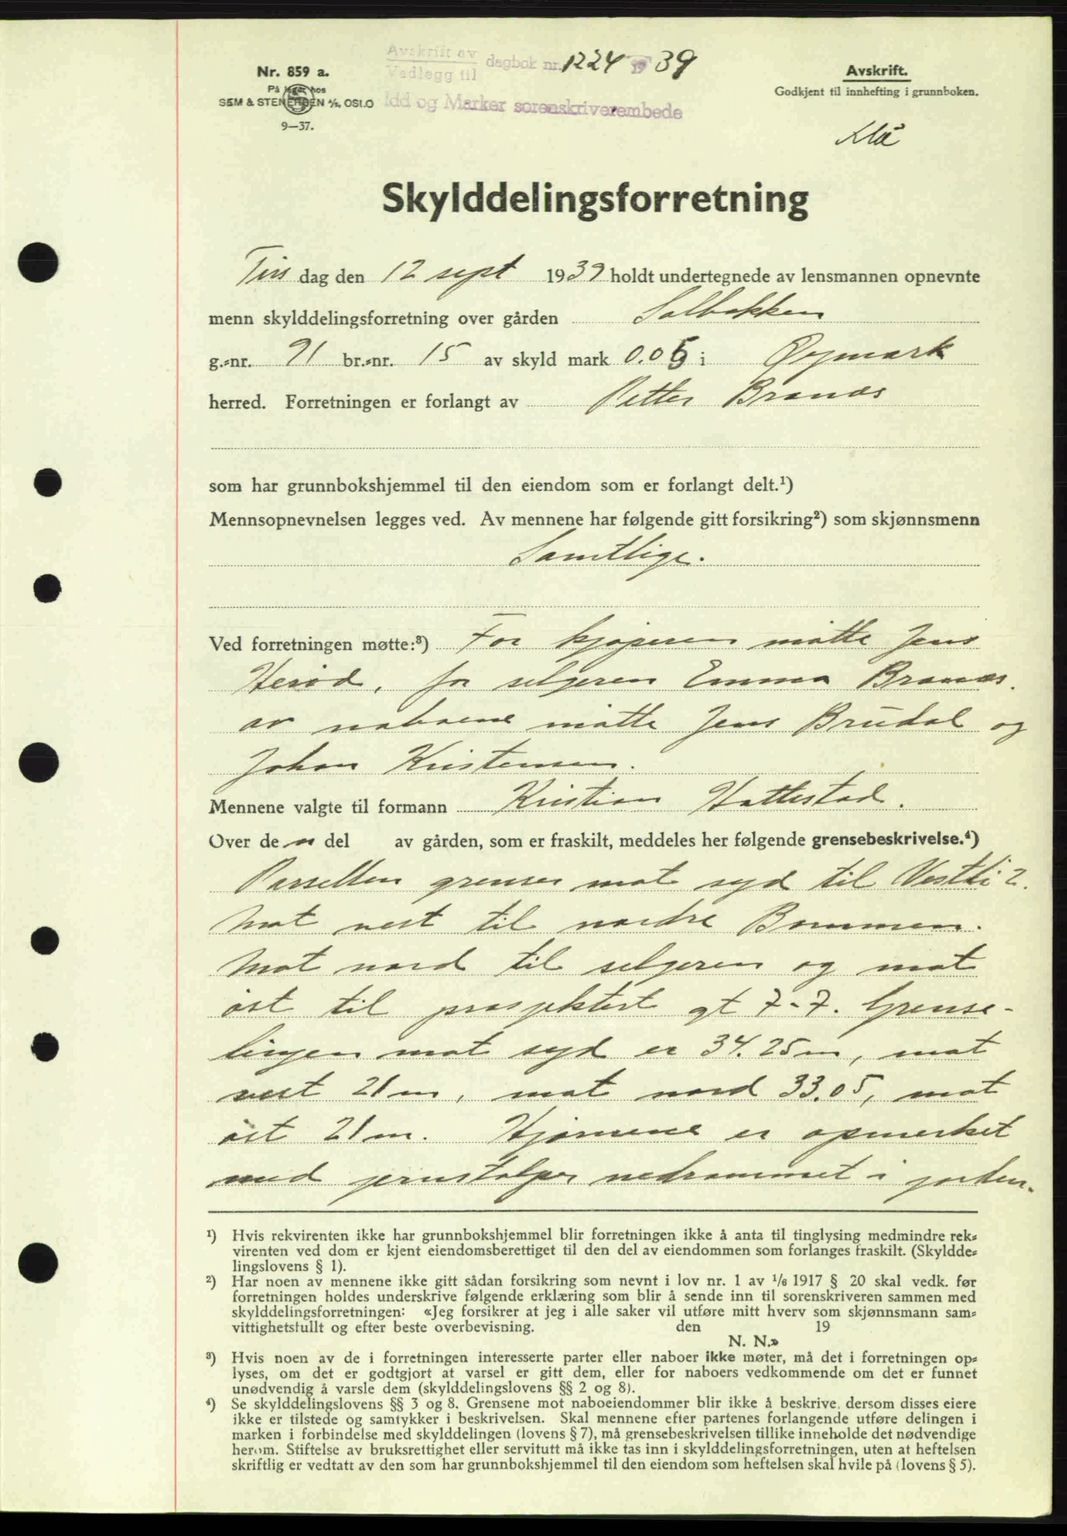 Avskrift av
Vedlegg til dagbok nr. 1224 1939
Idd og Marker sorenskriverembede
Nr. 859 a.
På lager hos
SEM & STENERSEN A/S, OSLO
9—37.
Avskrift.
Godkjent til innhefting i grunnboken.
Skylddelingsforretning
Tirs dag den 12 sept 1939 holdt undertegnede av lensmannen opnevnte
menn skylddelingsforretning over gården Solbakken
g.-nr. 91 br.-nr. 15 av skyld mark 0.05 i Øymark
herred. Forretningen er forlangt av Petter Brandes
som har grunnbokshjemmel til den eiendom som er forlangt delt.¹)
Mennsopnevnelsen legges ved. Av mennene har følgende gitt forsikring²) som skjønnsmenn
Samtlige.
Ved forretningen møtte:³) For kjøperen møtte Jens
Herød, for selgeren Emma Brandes.
av naboene møtte Jens Brudal og
Johan Kristensen.
Mennene valgte til formann Kristian Hattestad.
Over den del av gården, som er fraskilt, meddeles her følgende grensebeskrivelse.⁴)
Parsellen grenser mot syd til Vestli 2.
Mot vest til nordre Bommen.
Mot nord til selgeren og mot
øst til prosjektert gt 7-7. Grense-
linjen mot syd er 34.25m, mot
vest 21m, mot nord 33.05, mot
øst 21m. Hjørnene er opmerket
med jernstolper nedrammet i jorden.
¹) Hvis rekvirenten ikke har grunnbokshjemmel blir forretningen ikke å anta til tinglysing medmindre rek-
virenten ved dom er kjent eiendomsberettiget til den del av eiendommen som forlanges fraskilt. (Skyldde-
lingslovens § 1).
²) Har noen av mennene ikke gitt sådan forsikring som nevnt i lov nr. 1 av 1/6 1917 § 20 skal vedk. før
forretningen holdes underskrive følgende erklæring som blir å sende inn til sorenskriveren sammen med
skylddelingsforretningen: «Jeg forsikrer at jeg i alle saker vil utføre mitt hverv som skjønnsmann sam-
vittighetsfullt og efter beste overbevisning. den 19
N. N.»
³) Hvis noen av de i forretningen interesserte parter eller naboer ikke møter, må det i forretningen op-
lyses, om det er godtgjort at varsel er gitt dem, eller for naboers vedkommende om det er funnet
unødvendig å varsle dem (skylddelingslovens §§ 2 og 8).
⁴) Se skylddelingslovens §§ 3 og 8. Grensene mot naboeiendommer blir ikke å beskrive, dersom disses eiere
ikke er tilstede og samtykker i beskrivelsen. Skal mennene efter partenes forlangende utføre delingen i
marken i forbindelse med skylddelingen (lovens § 7), må grensebeskrivelsen tillike inneholde det nødvendige
herom. Stiftelse av bruksrettighet eller servitutt må ikke tas inn i skylddelingsforretningen, uten at heftelsen
skriftlig er vedtatt av den som har grunnbokshjemmel til den eiendom som heftelsen skal hvile på (lovens § 5).